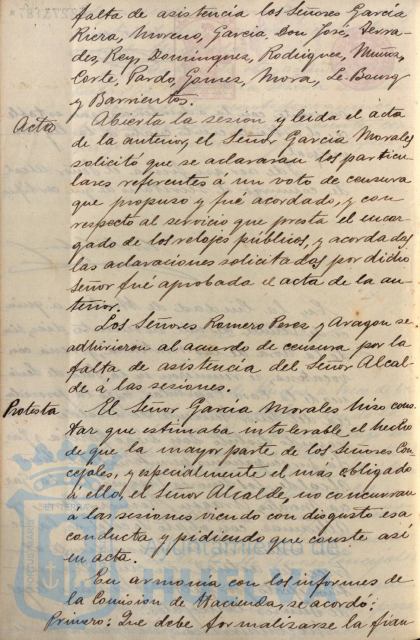 falta de asistencia los Señores García
Riera, Moreno, García Don José, Terra-
des, Rey, Dominguez, Rodriguez, Muñoz,
Corte, Pardo, Gómez, Mora, Le-Bourg
y Barrientos.
Acta
Abierta la sesión y leida el acta
de la anterior, el Señor García Morales
solicitó que se aclararan los particu-
lares referentes á un voto de censura
que propuso y fué acordado, y con
respecto al servicio que presta el encar-
gado de los relojes públicos, y acordadas
las aclaraciones solicitadas por dicho
Señor fué aprobada el acta de la an-
terior.
Los Señores Romero Perez y Aragon se
adhirieron al acuerdo de censura por la
falta de asistencia del Señor Alcal-
de á las sesiones.
Protesta
El Señor García Morales hizo cons-
tar que estimaba intolerable el hecho
de que la mayor parte de los Señores Con-
cejales, y especialmente el más obligado
á ello, el Señor Alcalde, no concurran
á las sesiones viendo con disgusto esa
conducta y pidiendo que conste así
en acta.
En armonia con los informes de
la Comision de Hacienda, se acordó:
Primero: Que debe formalizarse la fian
Ayuntamiento de
HUELVA